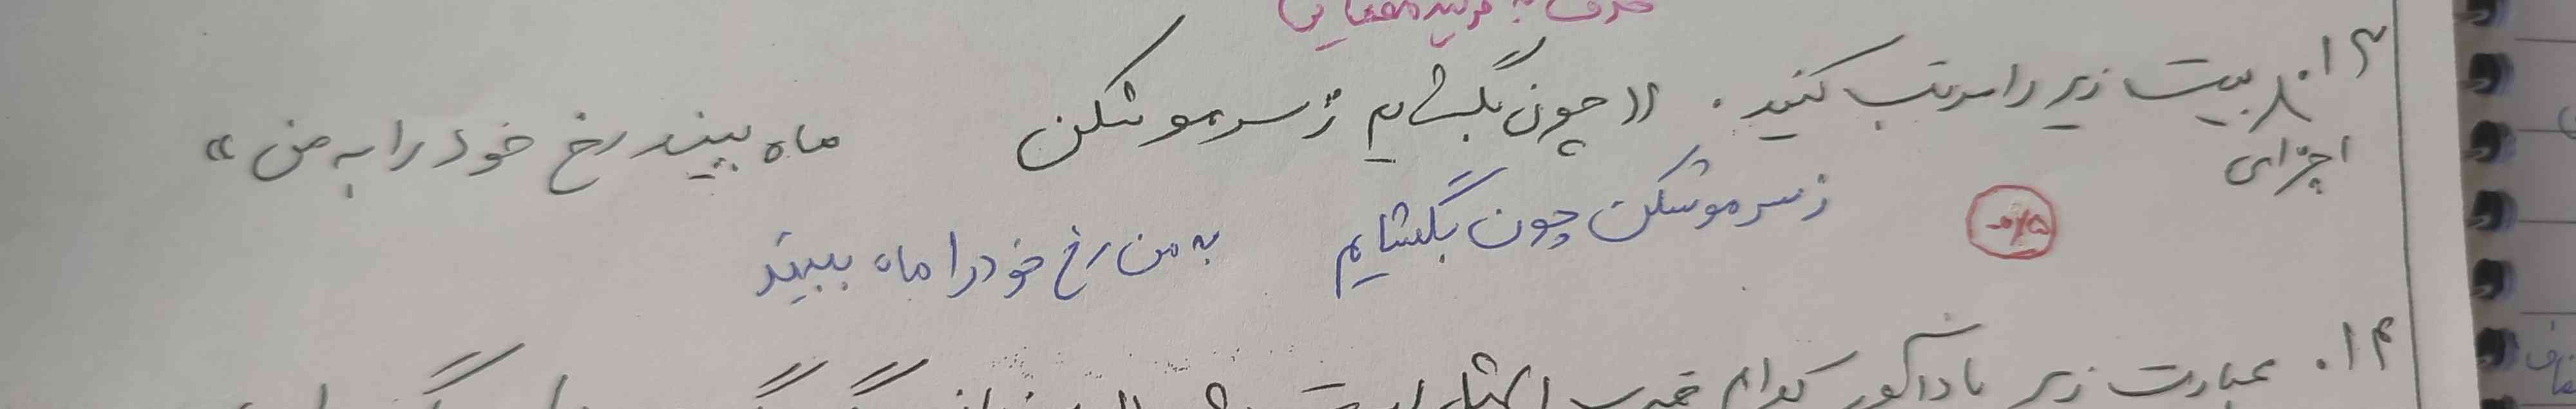 ۱۳. بیت زیر را مرتب کنید. «چون بگشایم ز سر مو شکن ماه ببیند رخ خود را به من»
اجزای
ز سر مو شکن چون بگشایم به من رخ خود را ماه ببیند
۱۴. عبارت زیر یادآور کدام